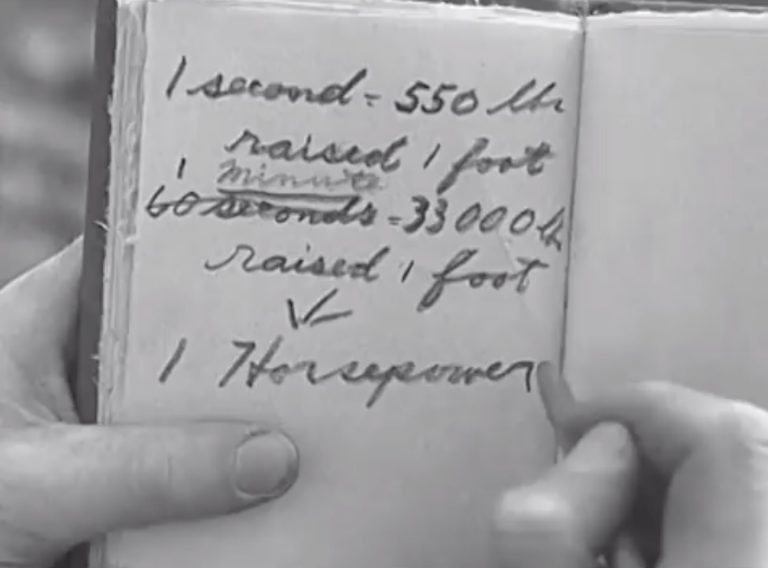 1 second = 550 lbs
raised 1 foot
1 minute
60 seconds = 33000 lb
raised 1 foot
1 Horsepower